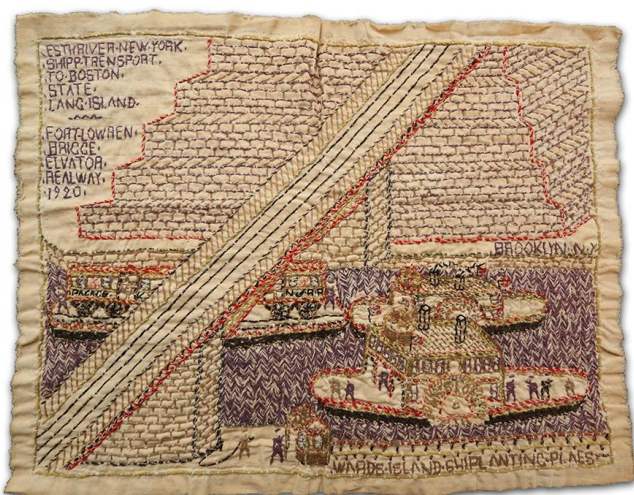 ESTHRIVER·NEW·YORK.
SHIPP·TRENSPORT.
TO·BOSTON.
STATE.
LANG·ISLAND.
FORT·LOWREN.
BRIGGE.
ELVATOR.
REALWAY.
1920.
BROOKLYN.N.Y.
WARDS·ISLAND·SHIPLANTING·PLAES